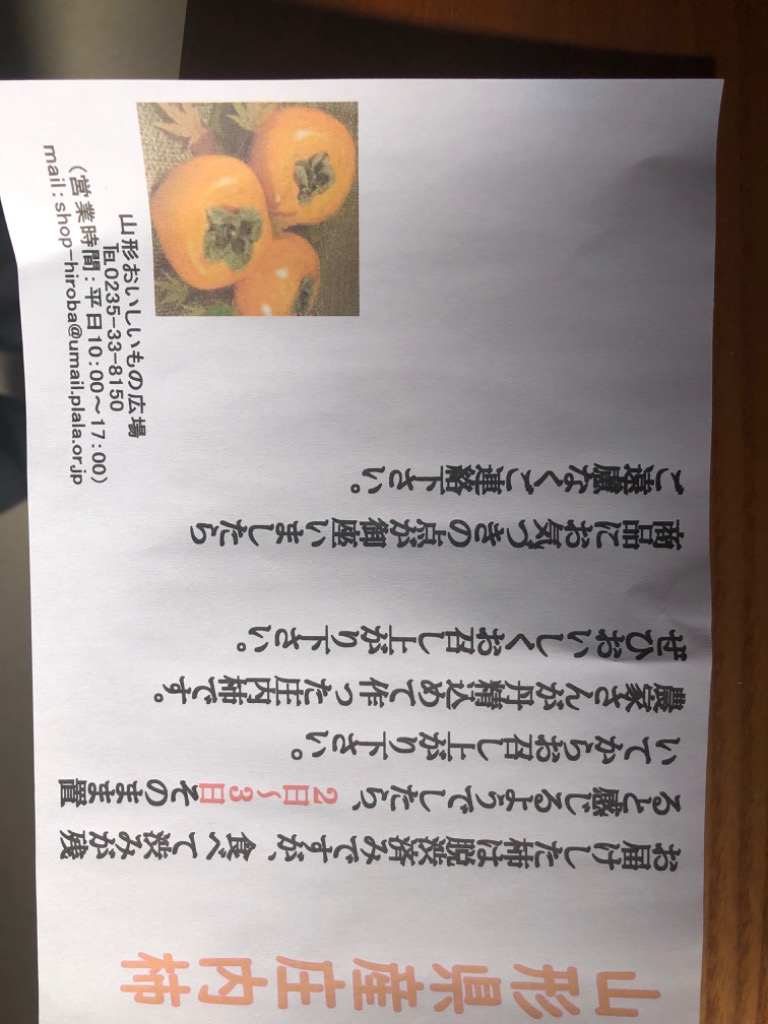 山形県産庄内柿
お届けした柿は脱渋済みですが、食べて渋みが残
ると感じるようでしたら、2日～3日そのまま置
いてからお召し上がり下さい。
農家さんが丹精込めて作った庄内柿です。
ぜひおいしくお召し上がり下さい。
商品にお気づきの点が御座いましたら
ご遠慮なくご連絡下さい。
山形おいしいもの広場
℡0235-33-8150
(営業時間:平日10:00～17:00)
mail:shop-hiroba@umail.plala.or.jp